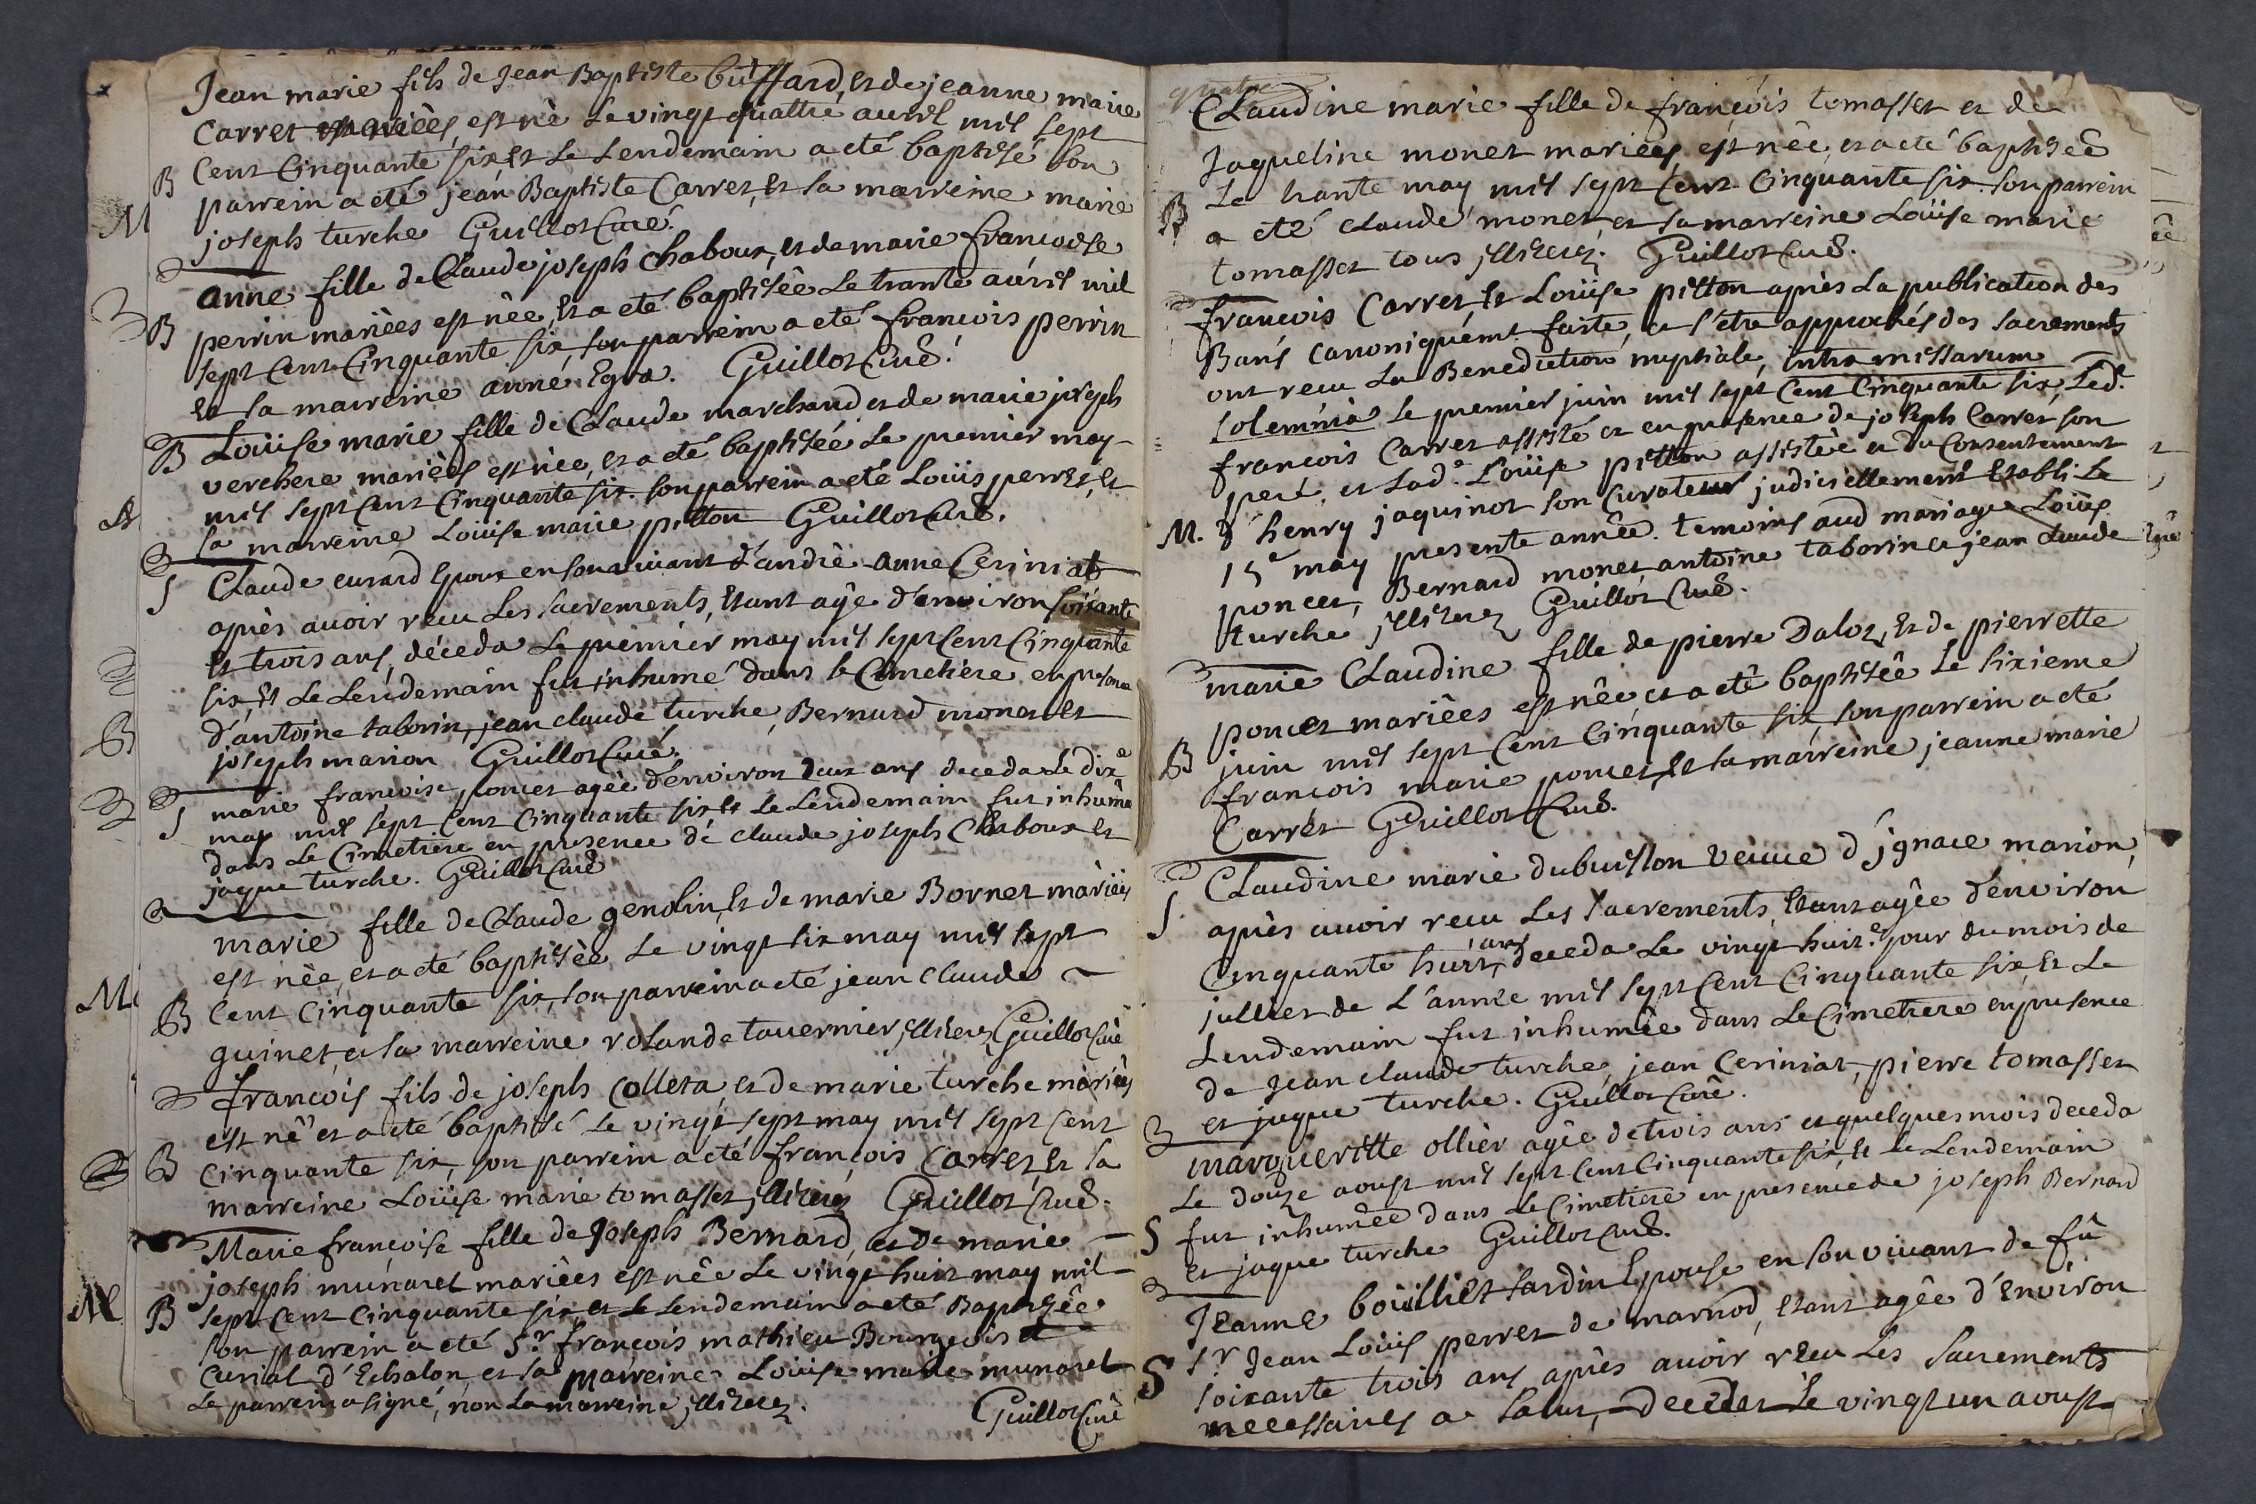 Jean marie fils de Jean Baptiste buffard, et de jeanne marie
Carret mariées, est né le vingt quattre avril mil sept
B Cent Cinquante six et le Lendemain a eté baptisé son
parrein a eté jean Baptiste Carret, et sa marreine marie
joseph turche Guillot Curé.
anne fille de Claude joseph Chaboux, et de marie francoise
B perrin mariées est née, et a eté baptisée le trante avril mil
sept Cent Cinquante six, son parrein a eté francois perrin
et sa marreine anne Egra. Guillot Curé.
B Loüise marie fille de Claude marchand et de marie joseph
verchere mariées est née, et a eté baptisée le premier may
mil sept Cent Cinquante six. son parrein a eté Loüis perret, et
sa marreine Loüise marie pitton Guillot Curé.
S Claude eurard Epoux en son vivant d'andré anne Ceriniat
après avoir recu Les sacrements, Etant agé d'environ soixante
et trois ans, déceda le premier may mil sept Cent Cinquante
six, et le Lendemain fut inhumé dans le Cimetiere en presence
d'antoine taborin, jean claude turche, Bernard monet et
joseph marion Guillot Curé.
S marie francoise poncet agée d'environ deux ans deceda le dix.e
may mil sept Cent Cinquante six, et le Lendemain fut inhumée
dans le Cimetiere en presence de claude joseph Chaboux et
jaque turche. Guillot Curé
marie fille de Claude gendlin, et de marie Bornet mariées
est née, et a eté baptisée le vingt six may mil sept
B Cent Cinquante six, son parrein a eté jean claude
guinet, et sa marreine rolande tavernier, illiterez Guillot Curé
francois fils de joseph Colleta, et de marie turche mariées
est né et a eté baptisé le vingt sept may mil sept Cent
B Cinquante six, son parrein a eté francois Carret, et sa
marreine Loüise marie tomasset, illiterez Guillot Curé.
Marie francoise fille de Joseph Bernard, et de marie
joseph munaret mariées est née le vingt huit may mil
B sept Cent Cinquante six et le Lendemain a eté Baptizée
son parrein a eté S.r francois mathieu Bourgeois et
Curial d'Echalon, et sa marreine Loüise marie munaret
le parrein a signé, non la marreine illiterez.
Guillot Curé
quatre
Claudine marie fille de francois tomasset et de
Jaqueline monet mariées est née, et a eté baptisée
B le trante may mil sept Cent Cinquante six son parrein
a eté claude monet, et sa marreine Loüise marie
tomasset tous illiterez. Guillot Curé.
francois Carret, et Loüise pitton après la publication des
Bans canoniquemt. faite, et s'etre approchés des sacrements
ont recu la Benediction nuptiale, intra missarum
solemnia le premier juin mil sept Cent Cinquante six, Led.t
francois Carret assisté et en presence de joseph Carret son
pere, et lad.e Loüise pitton assistée et du Consentement
M. d'henry jaquinot son Curateur judiciellement Etabli le
15e may presente année. temoins aud mariage Loüis
poncet, Bernard monet, antoine taborin et jean claude
turche illiterez Guillot Curé.
marie Claudine fille de pierre Daloz, et de pierrette
poncet mariées est née et a eté baptisée le sixieme
B juin mil sept Cent Cinquante six, son parrein a eté
francois marie poncet, et sa marreine jeanne marie
Carret Guillot Curé.
Claudine marie dubuisson veuve d'jgnace marion,
S. après avoir recu Les sacrements, Etant agée d'environ
Cinquante huit ans, deceda le vingt huit.e jour du mois de
jullier de L'année mil sept Cent Cinquante six, et le
Lendemain fut inhumée dans le Cimetiere en presence
de Jean claude turche, jean Ceriniat, pierre tomasset
et jaque turche. Guillot Curé.
marguerite ollier agée de trois ans et quelques mois deceda
le douze aoust mil sept Cent Cinquante six, et le Lendemain
S fut inhumée dans le Cimetiere en presence de joseph Bernard
et jaque turche Guillot Curé.
Jeanne boüillet sardin Epouse en son vivant de fû
S.r Jean Loüis perret de marnod, etant agée d'environ
S soixante trois ans après avoir recu Les sacrements
necessaires a salut, deceder le vingt un aoust